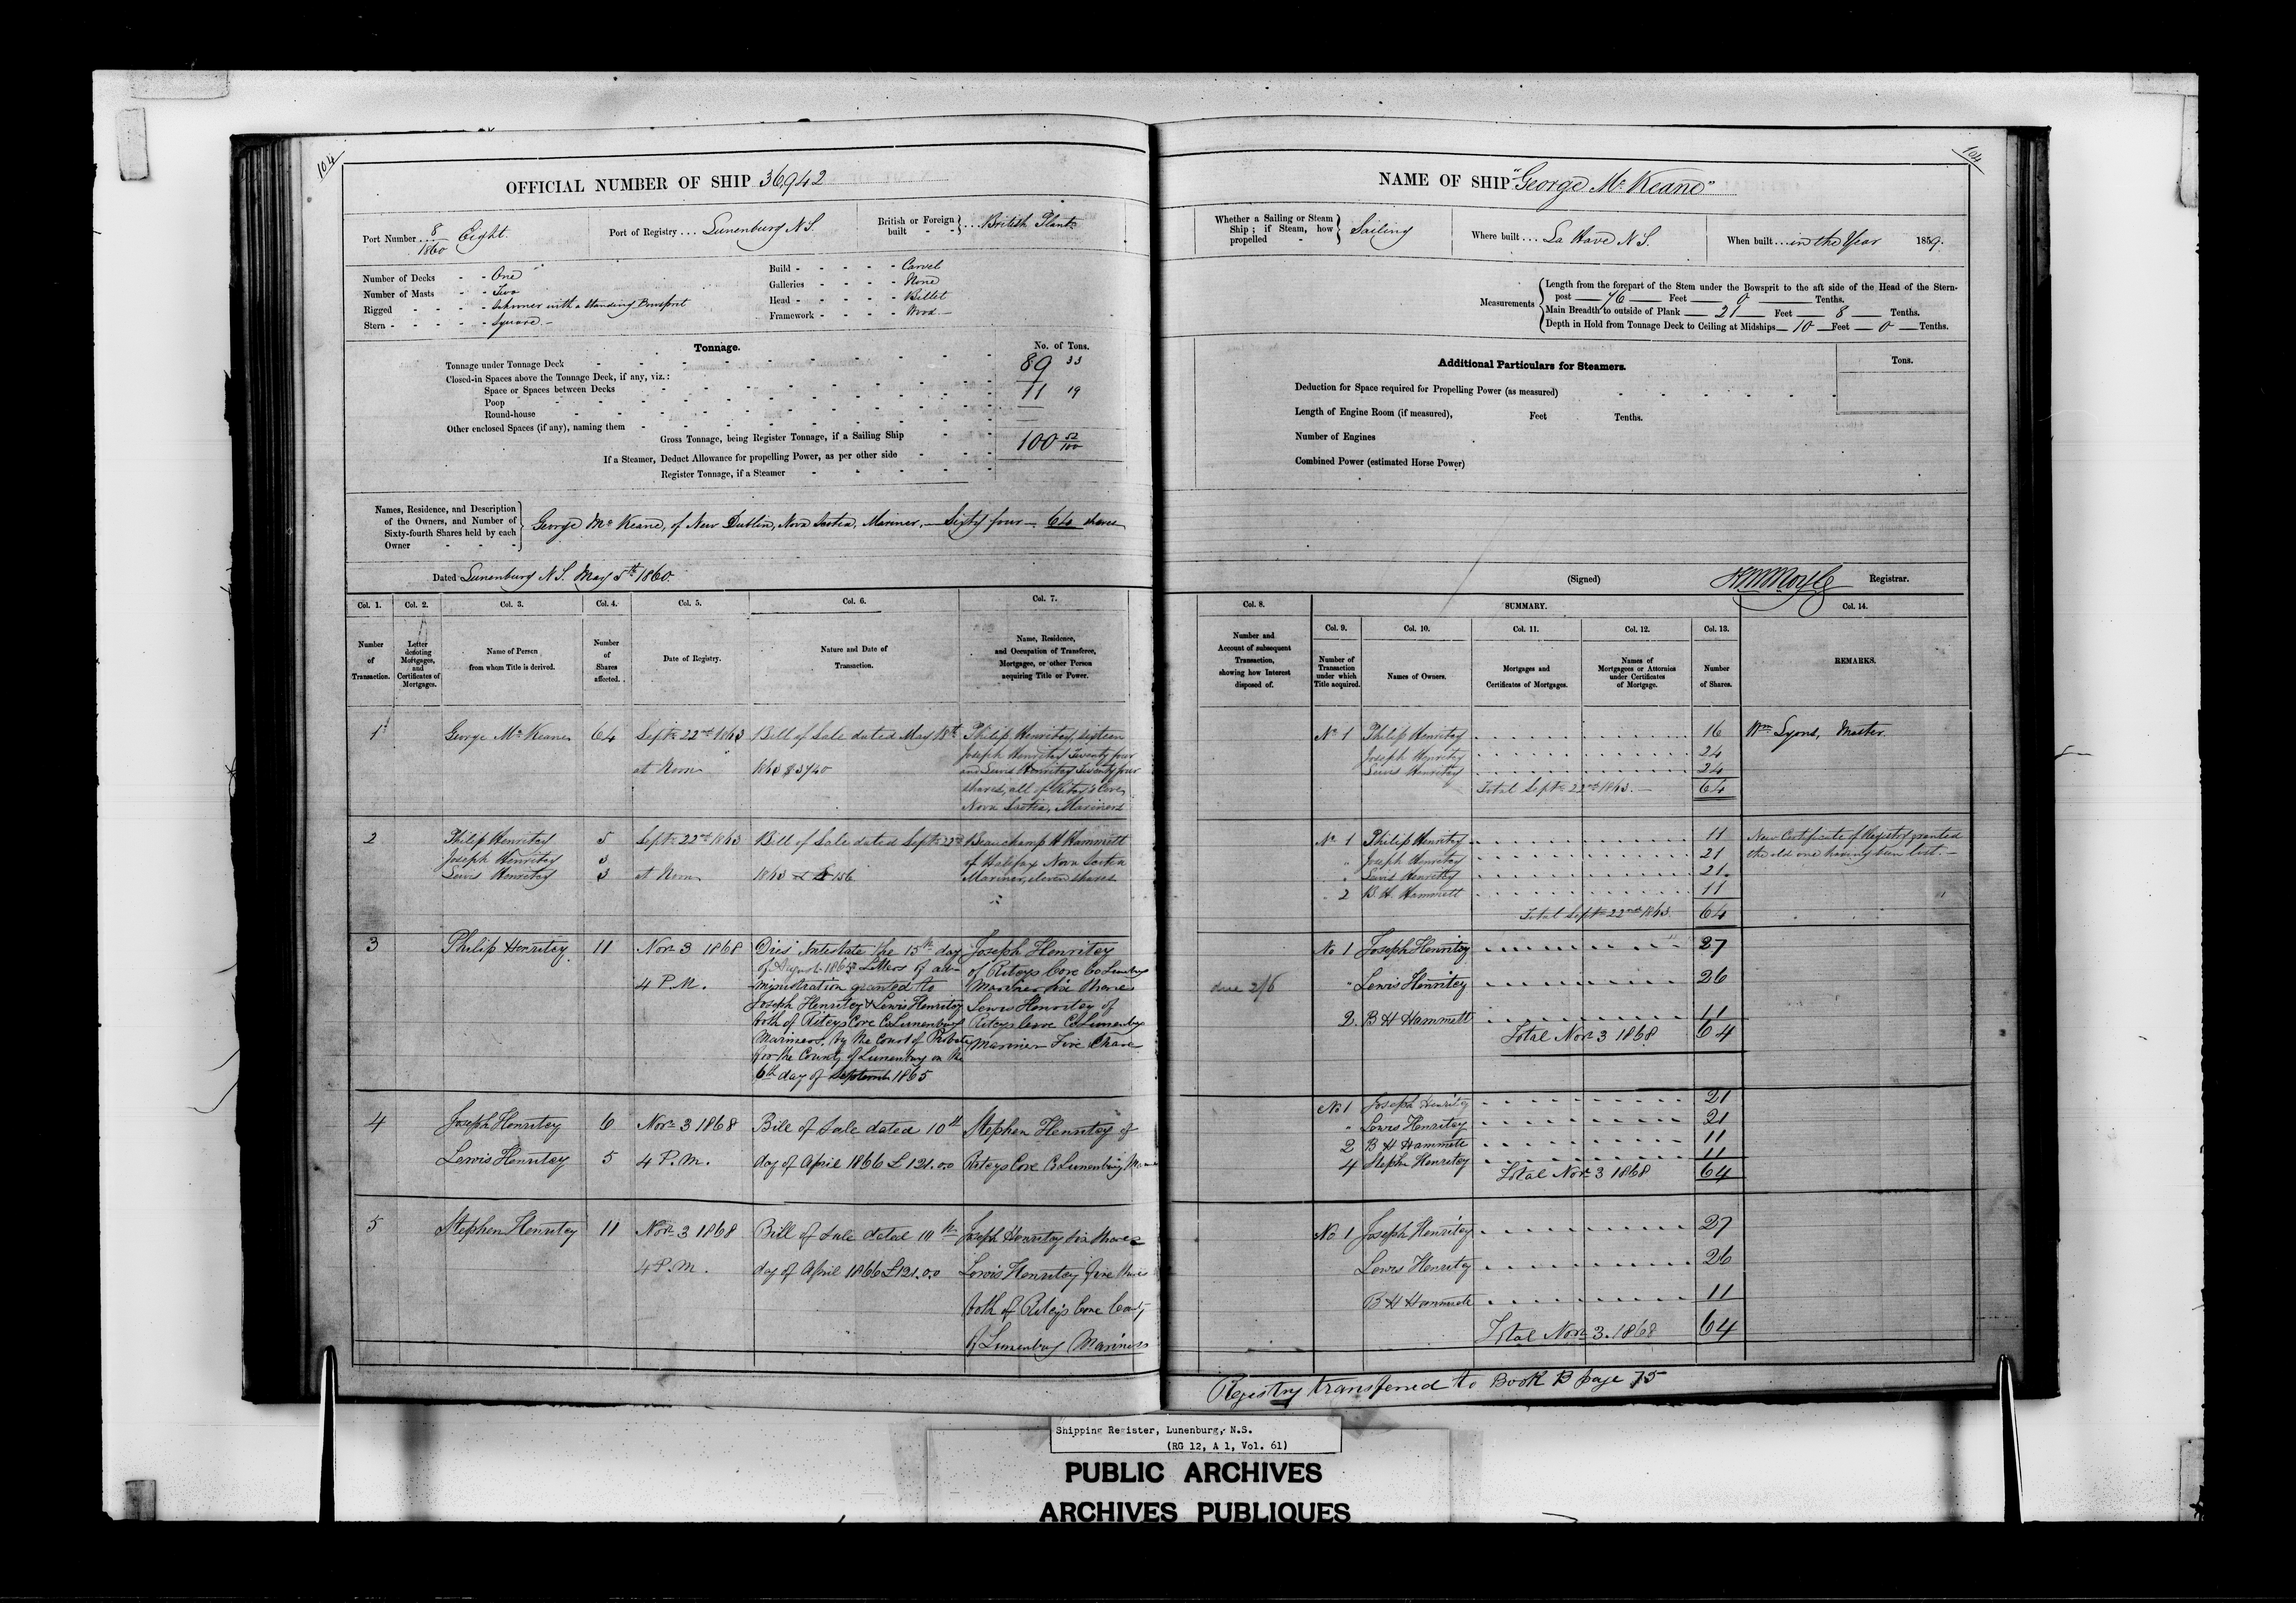 104
OFFICIAL NUMBER OF SHIP 36,942
Port Number 8/1860 Eight.
Port of Registry Lunenburg N.S.
British or Foreign built British Plantn
Number of Decks - - One
Number of Masts - - Two
Rigged - - Schooner with a Standing Bowsprit
Stern - - Square
Build - Carvel
Galleries - None
Head - Billet
Framework - Wood
Tonnage. No. of Tons.
Tonnage under Tonnage Deck 89 33
Closed-in Spaces above the Tonnage Deck, if any, viz.:
Space or Spaces between Decks 11 19
Poop
Round-house
Other enclosed Spaces (if any), naming them
Gross Tonnage, being Register Tonnage, if a Sailing Ship 100 52/100
If a Steamer, Deduct Allowance for propelling Power, as per other side
Register Tonnage, if a Steamer
Names, Residence, and Description
of the Owners, and Number of
Sixty-fourth Shares held by each
Owner
George Mc Keane, of New Dublin, Nova Scotia, Mariner, — Sixty four — 64 shares
Dated Lunenburg N.S. May 5th 1860.
Col. 1. Col. 2. Col. 3. Col. 4. Col. 5. Col. 6. Col. 7.
Number of Transaction.
Letter denoting Mortgages, and Certificates of Mortgages.
Name of Person from whom Title is derived.
Number of Shares affected.
Date of Registry.
Nature and Date of Transaction.
Name, Residence, and Occupation of Transferee, Mortgagee, or other Person acquiring Title or Power.
1 George Mc Keane 64 Septr 22nd 1863 Bill of Sale dated May 18th Philip Henritsy sixteen
Joseph Henritsy Twenty four
at Noon 1863 £3740 and Lewis Henritsy Twenty four
shares, all of Ritcy's Cove,
Nova Scotia, Mariners
2 Philip Henritsy 5 Septr 22nd 1863 Bill of Sale dated Septr 22nd Beauchamp H Hammett
Joseph Henritsy 3 of Halifax Nova Scotia
Lewis Henritsy 3 at Noon 1863 £156 Mariner, eleven shares
3 Philip Henritsy 11 Novr 3 1868 Died Intestate the 15th day Joseph Henritsy
of August 1865 Letters of ad- of Riteys Cove Co Lunenburg
4 P.M. ministration granted to Mariner Six Shares
Joseph Henritsy & Lewis Henritsy Lewis Henritsy of
both of Riteys Cove Co Lunenburg Riteys Cove Co Lunenburg
Mariners, by the Court of Probate Mariner Five Share
for the County of Lunenburg on the
6th day of Septemb 1865
4 Joseph Henritsy 6 Novr 3 1868 Bill of Sale dated 10th Stephen Henritsy of
Lewis Henritsy 5 4 P.M. day of April 1866 £121.0.0 Riteys Cove Co Lunenburg
5 Stephen Henritsy 11 Novr 3 1868 Bill of Sale dated 10th Joseph Henritsy Six Shares
4 P.M. day of April 1866 £121.0.0 Lewis Henritsy five Shares
both of Ritey's Cove County
of Lunenburg Mariners
104
NAME OF SHIP "George Mc Keane"
Whether a Sailing or Steam Ship; if Steam, how propelled Sailing
Where built La Have N.S.
When built in the Year 1859.
Measurements
Length from the forepart of the Stem under the Bowsprit to the aft side of the Head of the Stern-
post — 76 — Feet — 0 — Tenths.
Main Breadth to outside of Plank — 21 — Feet — 8 — Tenths.
Depth in Hold from Tonnage Deck to Ceiling at Midships — 10 — Feet — 0 — Tenths.
Additional Particulars for Steamers. Tons.
Deduction for Space required for Propelling Power (as measured)
Length of Engine Room (if measured), Feet Tenths.
Number of Engines
Combined Power (estimated Horse Power)
(Signed) Registrar.
Col. 8. SUMMARY. Col. 14.
Col. 9. Col. 10. Col. 11. Col. 12. Col. 13.
Number and Account of subsequent Transaction, showing how Interest disposed of.
Number of Transaction under which Title acquired.
Names of Owners.
Mortgages and Certificates of Mortgages.
Names of Mortgagees or Attornies under Certificates of Mortgage.
Number of Shares.
REMARKS.
No 1 Philip Henritsy 16 Wm Lyons, Master
Joseph Henritsy 24
Lewis Henritsy 24
Total Septr 22nd 1863. — 64
No 1 Philip Henritsy 11 New Certificate of Registry granted
" Joseph Henritsy 21 the old one having been lost. —
" Lewis Henritsy 21
2 B. H. Hammett 11
Total Septr 22nd 1863 64
No 1 Joseph Henritsy 27
due 2/6 " Lewis Henritsy 26
2. B H Hammett 11
Total Novr 3 1868 64
No 1 Joseph Henritsy 21
" Lewis Henritsy 21
2 B H Hammett 11
4 Stephn Henritsy 11
Total Novr 3 1868 64
No 1 Joseph Henritsy 27
Lewis Henritsy 26
B H Hammett 11
Total Novr 3. 1868 64
Registry transferred to Book B page 75
Shipping Register, Lunenburg, N.S.
(RG 12, A 1, Vol. 61)
PUBLIC ARCHIVES
ARCHIVES PUBLIQUES